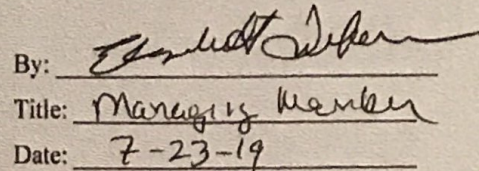 By:
Title: Managing Member
Date: 7-23-19